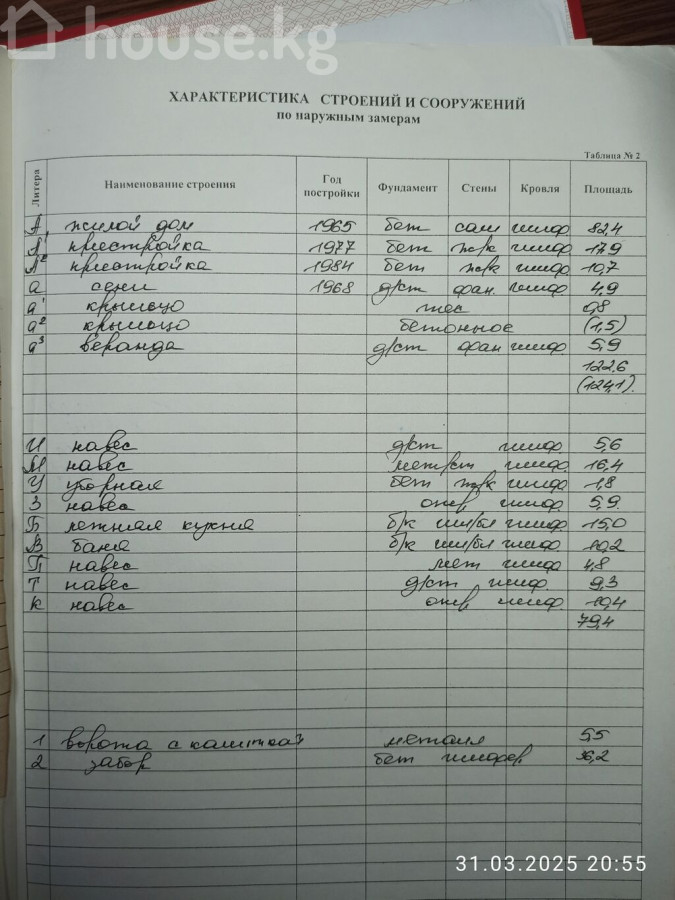 house.kg
ХАРАКТЕРИСТИКА СТРОЕНИЙ И СООРУЖЕНИЙ
по наружным замерам
Таблица № 2
Литера Наименование строения Год постройки Фундамент Стены Кровля Площадь
А жилой дом 1965 бет сам шиф 82,4
А¹ пристройка 1977 бет ж/к шиф. 17,9
А² пристройка 1984 бет ж/к шиф. 10,7
а сени 1968 д/ст фан. шиф. 4,9
а¹ крыльцо тес 0,8
а² крыльцо бетонное (1,5)
а³ веранда д/ст фан шиф. 5,9
122,6
(124,1).
И навес д/ст шиф 5,6
М навес мет/ст шиф. 16,4
У уборная бет ж/к шиф. 1,8
З навес шиф. 5,9
Б летняя кухня б/к шл/бл шиф. 15,0
В баня б/к шл/бл шиф. 10,2
П навес мет шиф 4,8
Т навес д/ст шиф. 9,3
К навес шиф 10,4
79,4
1 ворота с калиткой металл 5,5
2 забор бет шифер 36,2
31.03.2025 20:55